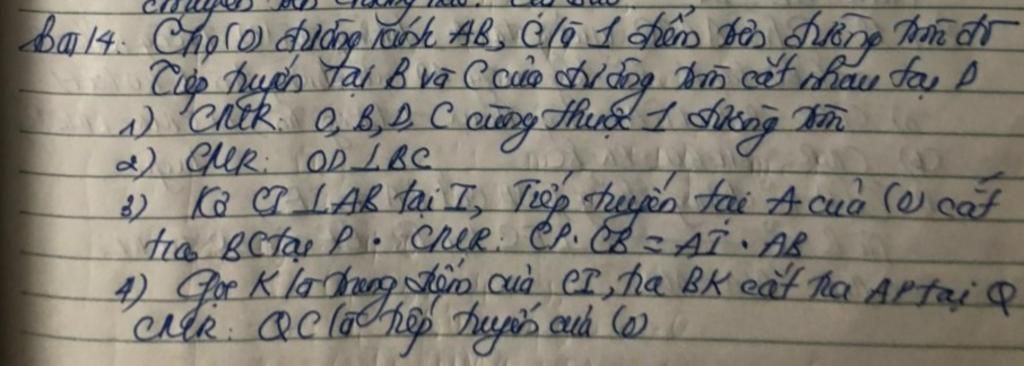 Bài 14: Cho (O) đường kính AB, C là 1 điểm trên đường tròn đó
Tiếp tuyến tại B và C của đường tròn cắt nhau tại D
1) CMR: O, B, D, C cùng thuộc 1 đường tròn
2) CMR: OD ⊥ BC
3) Kẻ CI ⊥ AB tại I, Tiếp tuyến tại A của (O) cắt
tia BC tại P. CMR: CP. CB = AI . AB
4) Gọi K là trung điểm của CI, tia BK cắt tia AP tại Q
CMR: QC là tiếp tuyến của (O)